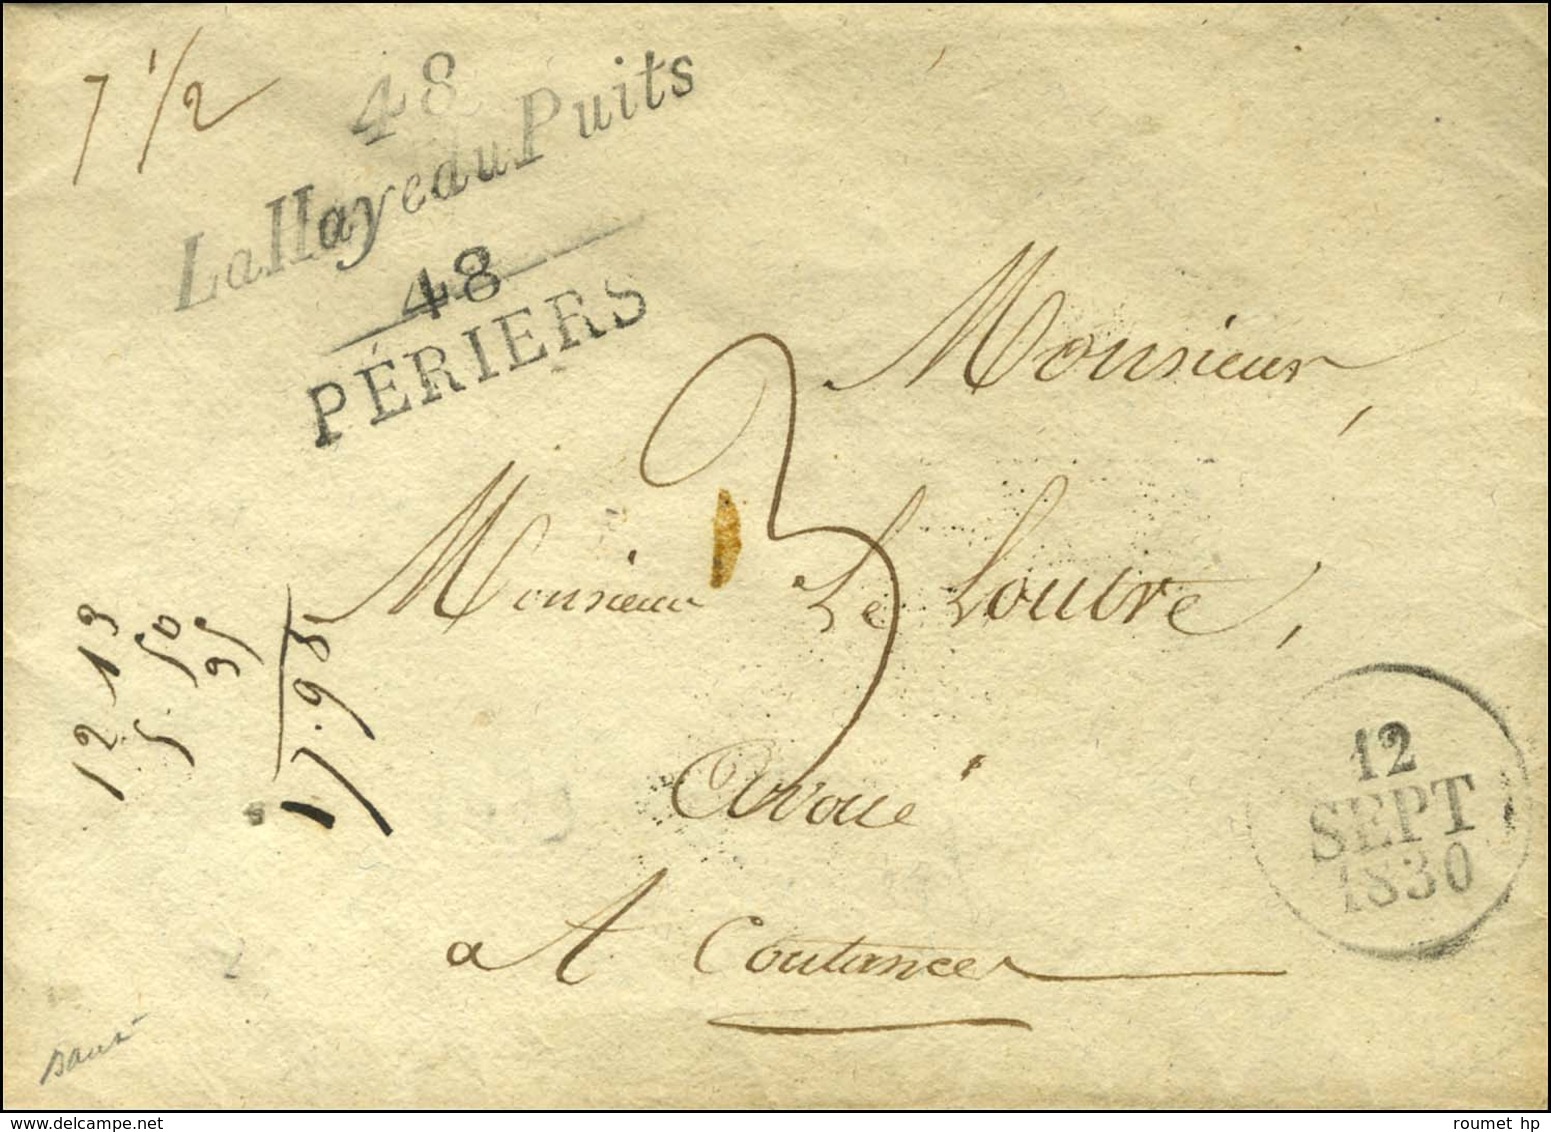 7 1/2
48
La Haye du Puits
48
PÉRIERS
Monsieur,
3
Monsieur Le Loutre,
Avoué
a A Coutances
12
SEPT
1830
12 13
5.50
35
17.98
roumet hp